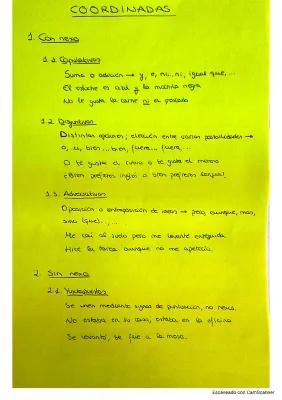 COORDINADAS
1. Con nexo
1.1. Copulativas
Suma o adición → y, e, ni...ni, igual que,...
El estuche es azul y la mochila negra
No le gusta la carne ni el pescado
1.2. Disyuntivas
Distintas opciones; elección entre varias posibilidades →
o, u, bien...bien, fuera... fuera,...
O te gusta el o te gusta el
¿Bien prefieres inglés o bien prefieres
1.3. Adversativas
Oposición o contraposición de ideas → pero, aunque, mas,
sino (que)...,...
Me caí al suelo pero me levanté enseguida
Hice la tarea aunque no me apetecía.
2. Sin nexo
2.1. Yuxtapuestas
Se unen mediante signos de puntuación, no nexos.
No estaba en su casa; estaba en la oficina
Se levantó, se fue a la mesa.
Escaneado con CamScanner